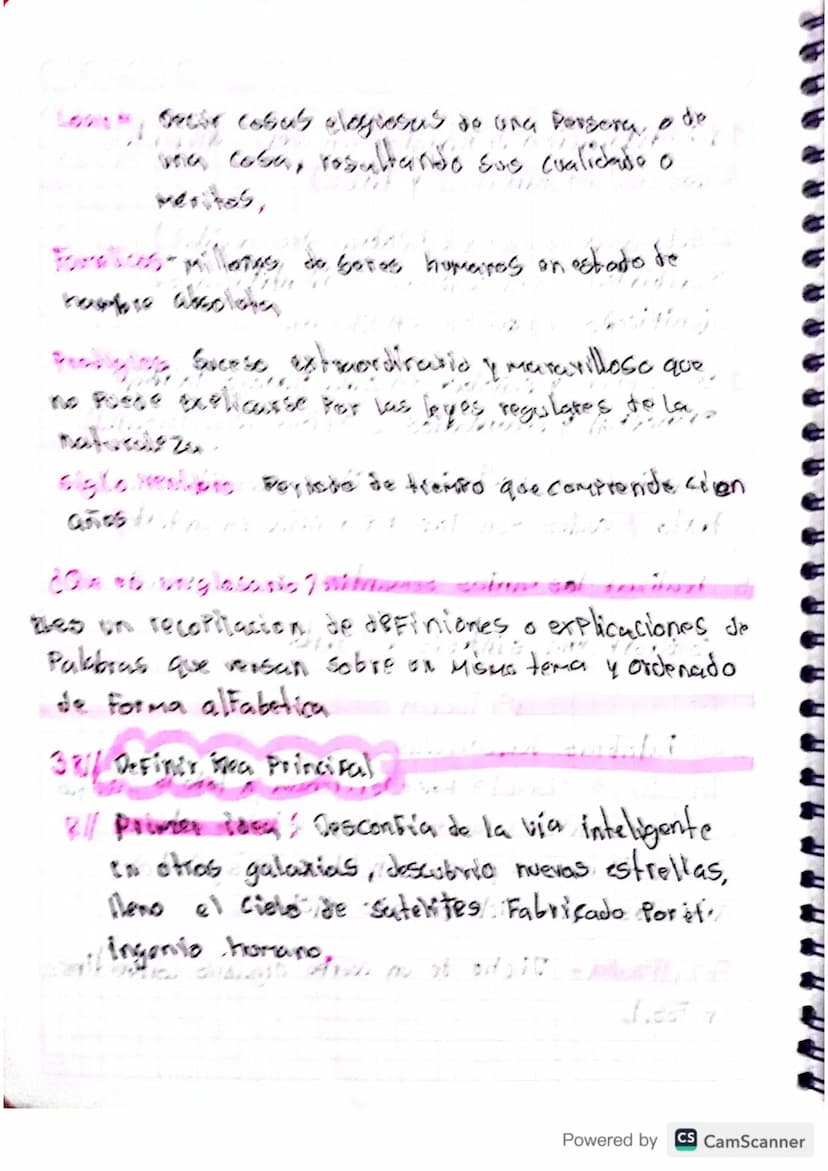 decir cosas elogiosas de una Persona, o de
una cosa, resultando sus cualidade o
meritos,
Famelicos - millones, de seres humanos en estado de
hambre absoluta
Prodigios Suceso extraordinario y maravilloso que
no Puede explicarse Por las leyes regulares de la
naturaleza.
Siglo Periodo de tiempo que comprende cien
años
¿Que es un glosario?
es un recopilacion de definiones o explicaciones de
Palabras que versan sobre un mismo tema y ordenado
de Forma alfabetica
3R// Definir idea Principal
R// Primer idea: Desconfia de la via inteligente
en otras galaxias, descubrio nuevas estrellas,
lleno el cielo de satelites Fabricado Por el
ingenio humano.
Powered by CS CamScanner